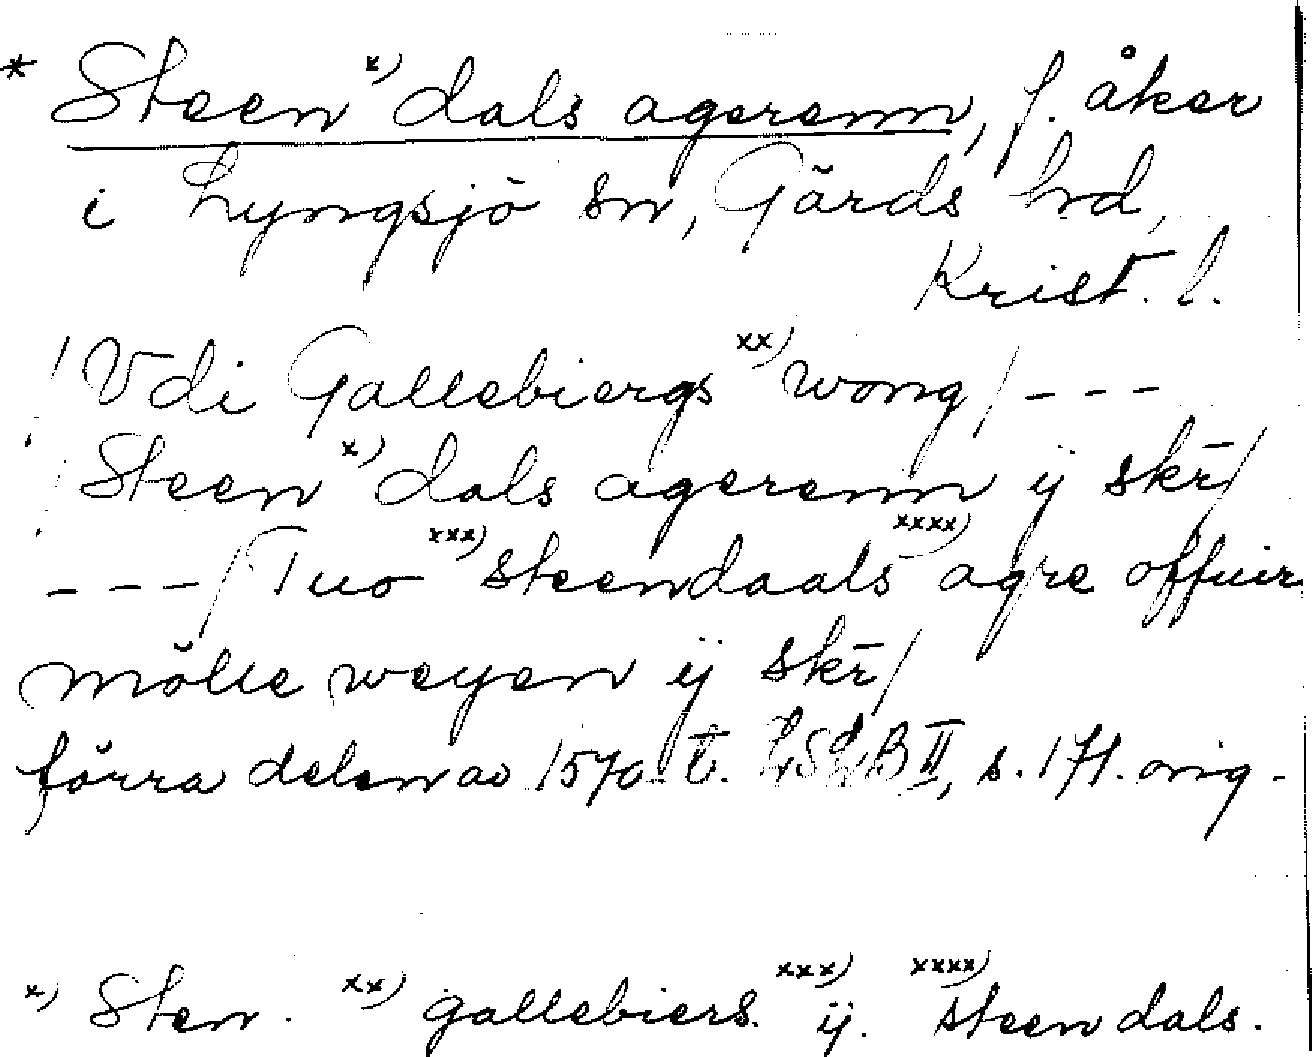 * Steen x) dals agerenn, f. åker
i Lyngsjö sn, Gärds hd,
Krist. l.
/ Vdi Gallebiergs xx) wong / - - -
/ Steen x) dals agerenn ij skr̄ /
- - - / Tuo xxx) steendaals xxxx) agre offuir
mölle weyen ij skr̄ /
förra delen av 1570-t. LSdB II, s. 171. orig.
x) Sten. xx) gallebiers. xxx) ij. xxxx) steen dals.